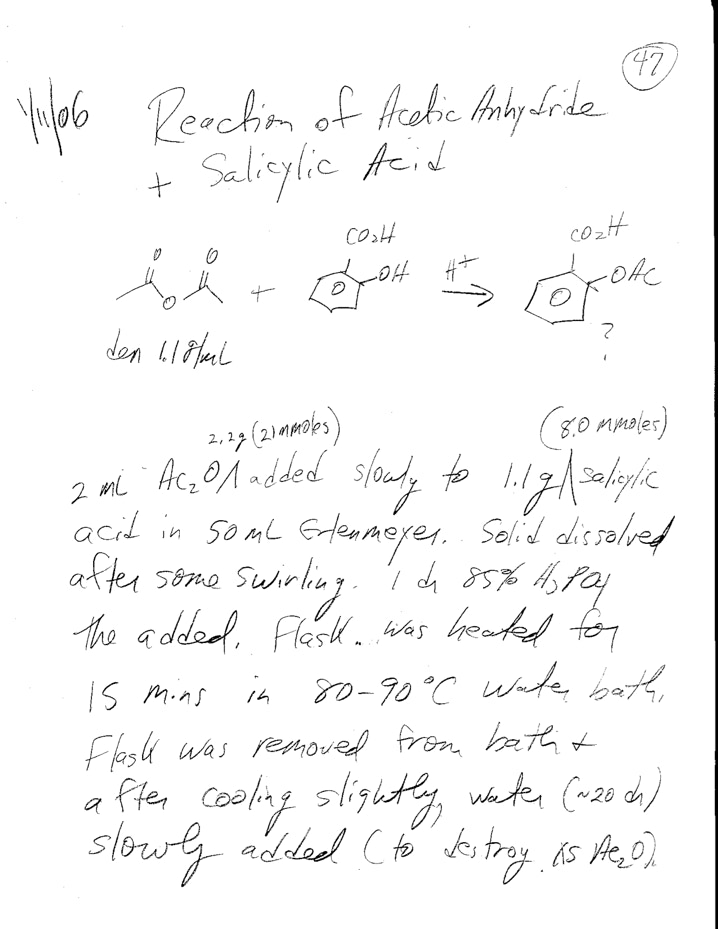 47
1/11/06 Reaction of Acetic Anhydride
+ Salicylic Acid
CO2H CO2H
O O + OH H+ → OAc
O O O
den 1.1 g/mL ?
2.2g (21 mmoles) (8.0 mmoles)
2 mL Ac2O added slowly to 1.1 g salicylic
acid in 50 mL Erlenmeyer. Solid dissolved
after some swirling. 1 d 85% H3PO4
the added. Flask was heated for
15 mins in 80-90°C water bath.
Flask was removed from bath +
after cooling slightly, water (~20 d)
slowly added (to destroy xs Ac2O).